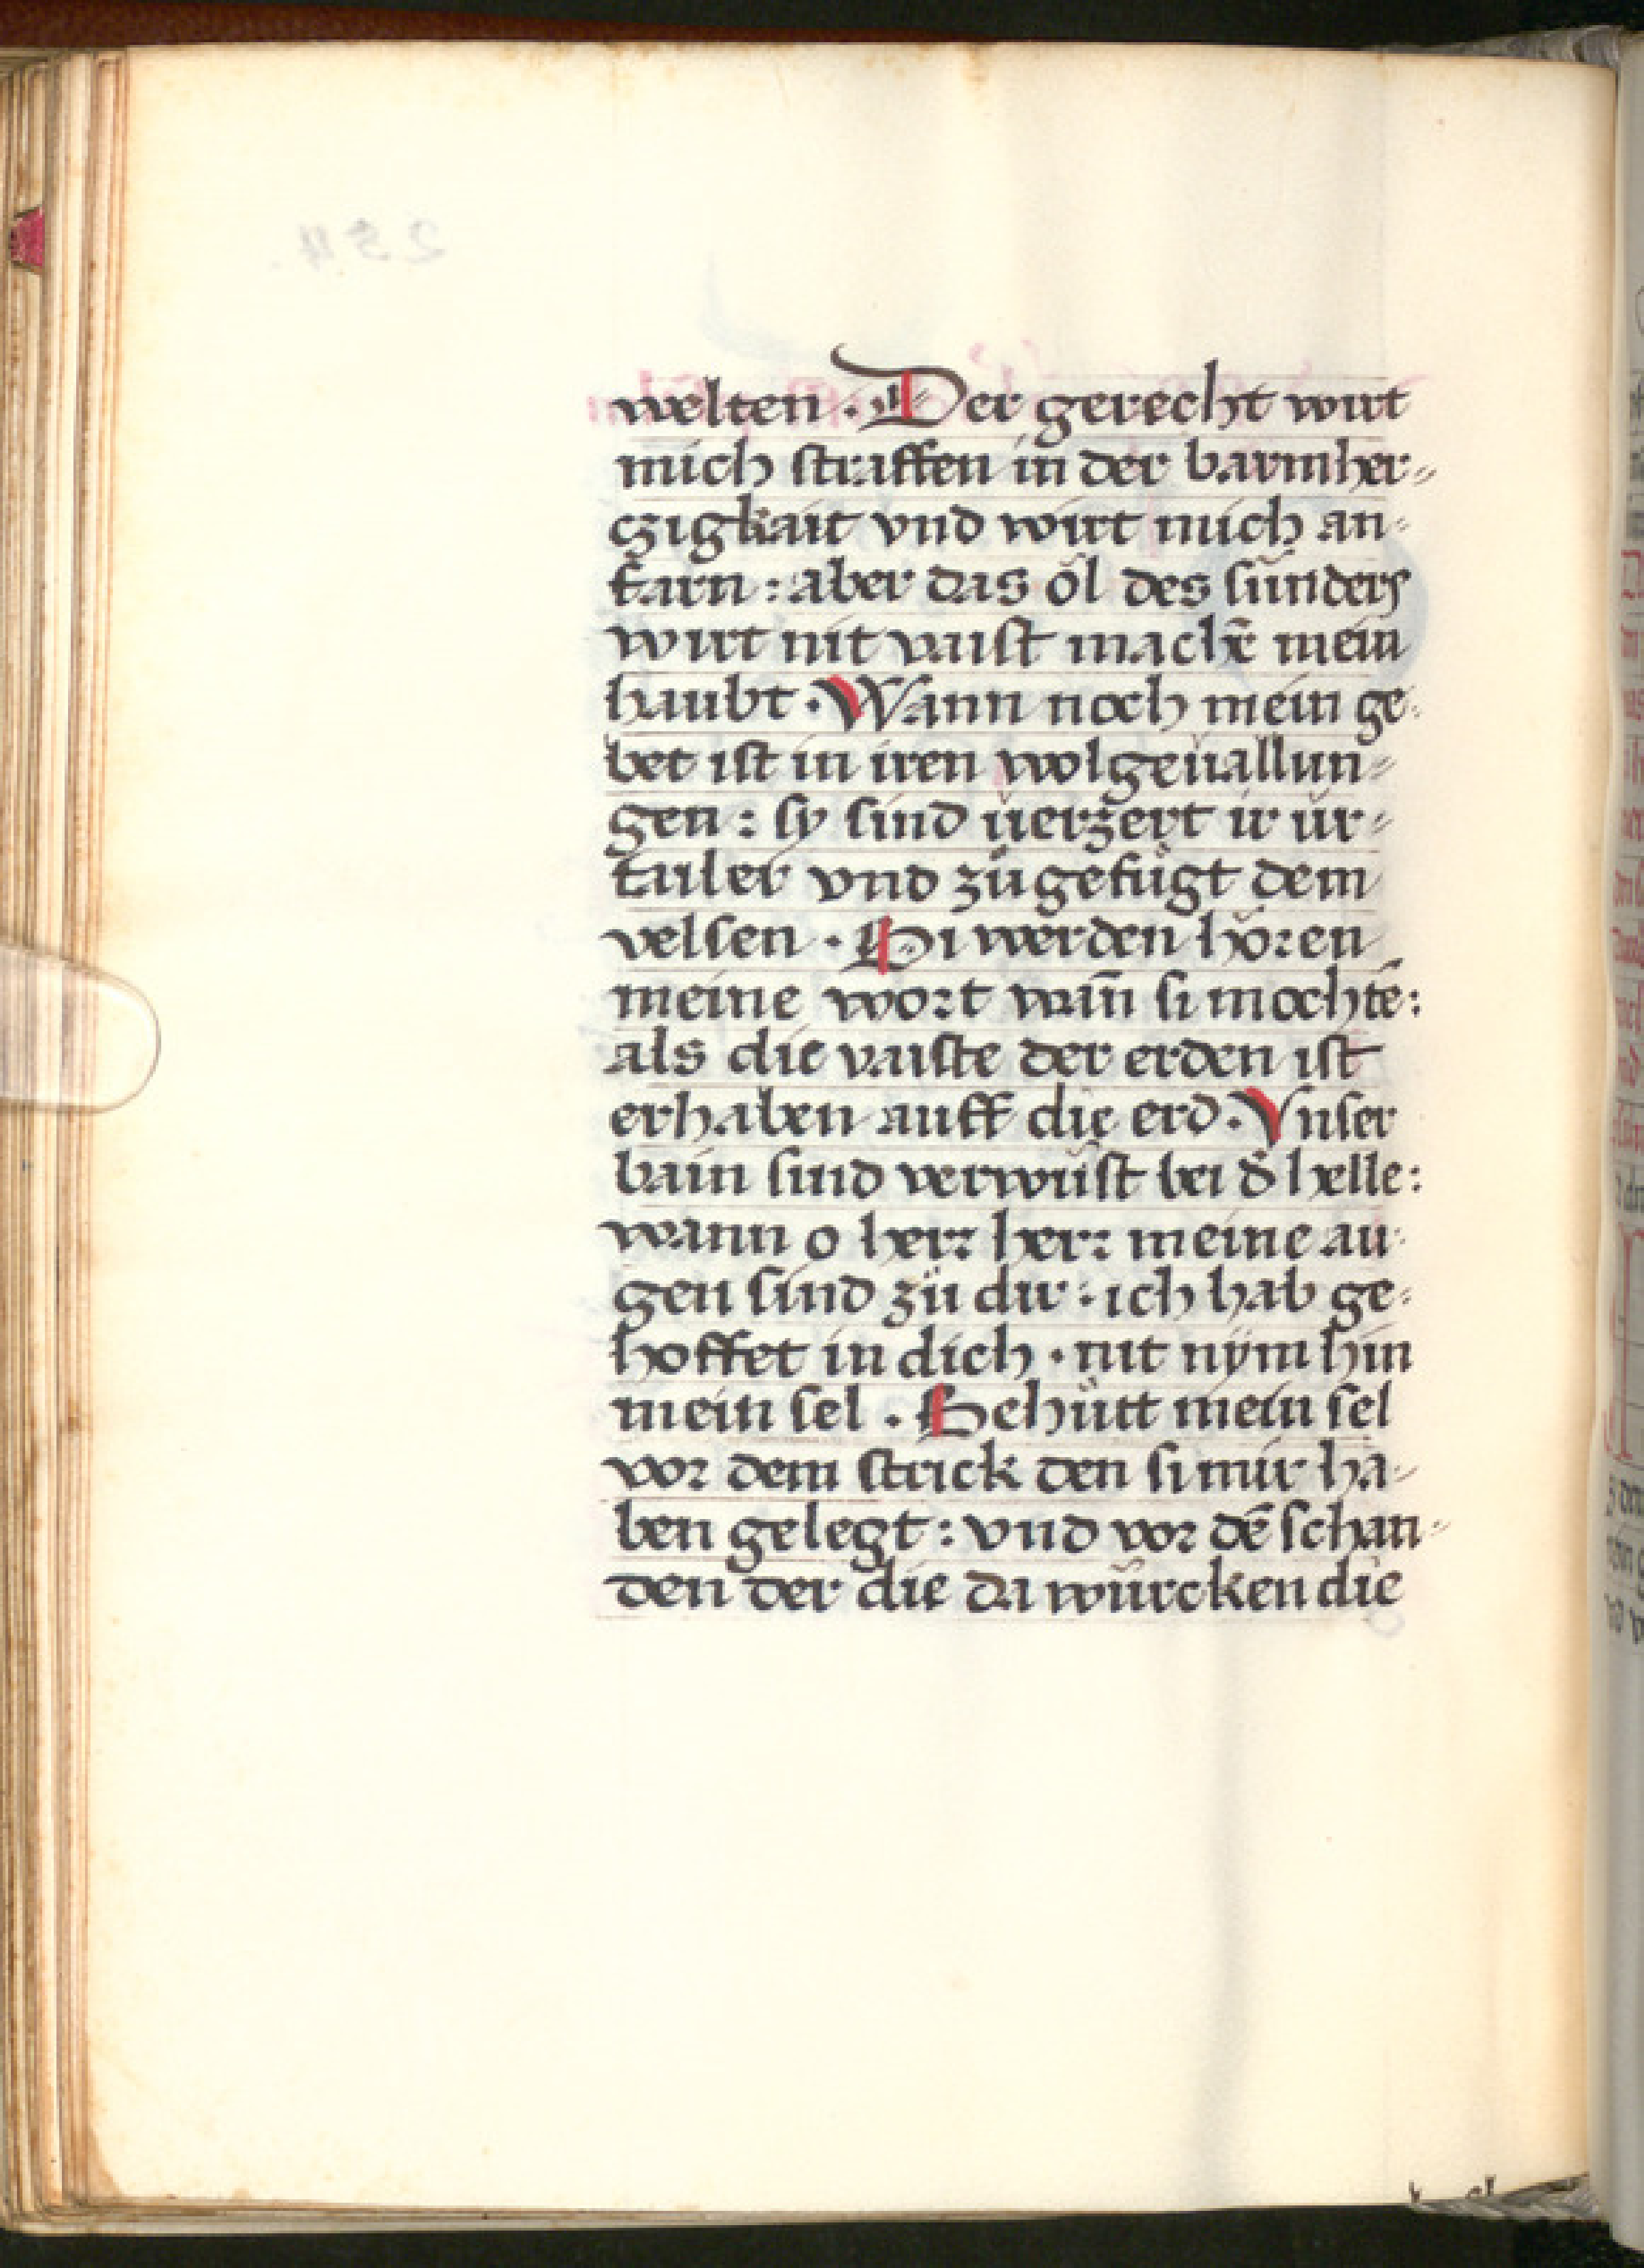 welten · Der gerecht wirt
mich straffen in der barmher⸗
czigkait vnd wirt mich an⸗
farn : aber das öl des sünders
wirt nit vaist machē mein
haubt · Wann noch mein ge⸗
bet ist in iren wolgeuallun⸗
gen : sy sind uerzert ir ur⸗
tailer vnd zůgefůgt dem
velsen · Si werden hören
meine wort wañ si mochtē :
als die vaiste der erden ist
erhaben auff die erd · Vnser
bain sind verwüst bei d̕ helle :
wann o herr herr meine au⸗
gen sind zů dir : ich hab ge⸗
hoffet in dich · nit nÿm hin
mein sel · Behůtt mein sel
vor dem strick den si mir ha⸗
ben gelegt : vnd vor dē schan⸗
den der die da würcken die